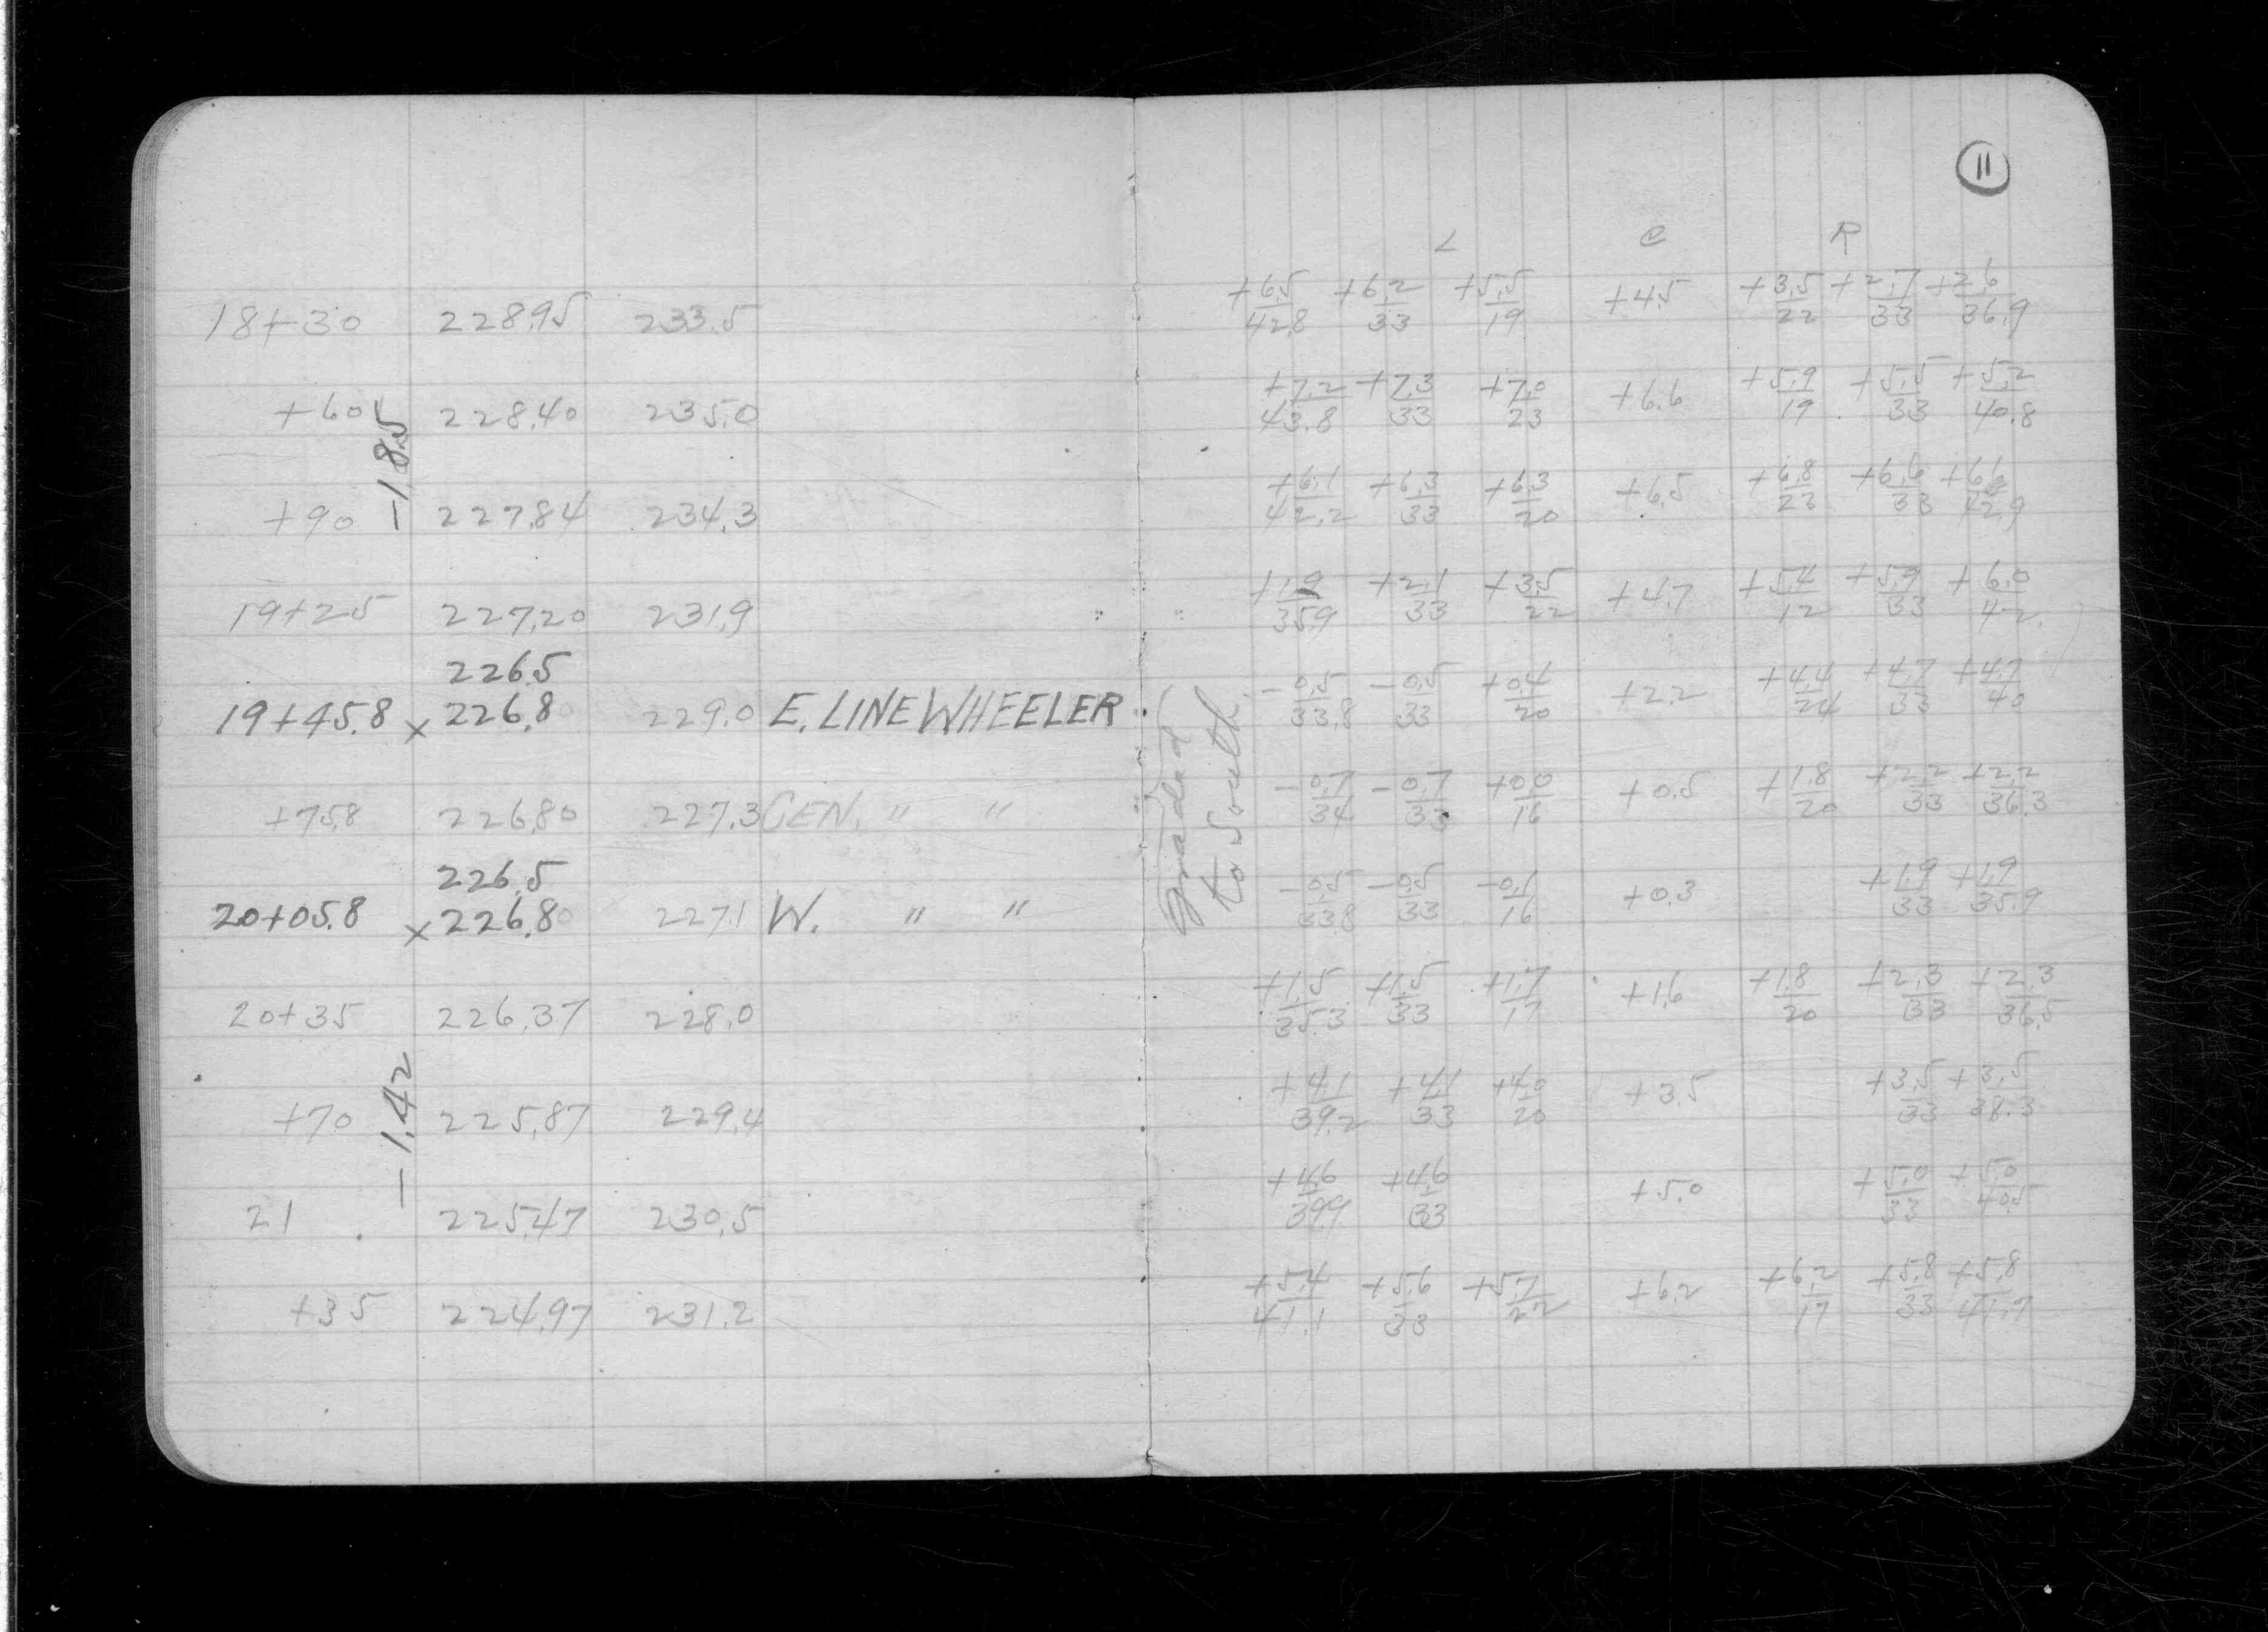 11
L C R
18+30 228.95 233.5 +6.5/42.8 +6.2/33 +5.5/19 +4.5 +3.5/22 +2.7/33 +2.6/36.9
+60 228.40 235.0 +7.2/43.8 +7.3/33 +7.0/23 +6.6 +5.9/19 +5.5/33 +5.2/40.8
-1.85
+90 227.84 234.3 +6.1/42.2 +6.3/33 +6.3/20 +6.5 +6.8/23 +6.6/33 +6.6/42.9
19+25 227.20 231.9 +1.9/35.9 +2.1/33 +3.5/22 +4.7 +5.4/12 +5.9/33 +6.0/42
226.5
19+45.8 x 226.80 229.0 E. LINE WHEELER -0.5/33.8 -0.5/33 +0.4/20 +2.2 +4.4/24 +4.7/33 +4.7/40
Graded to South
+75.8 226.80 227.3 CEN. " " -0.7/34 -0.7/33 +0.0/16 +0.5 +1.8/20 +2.2/33 +2.2/36.3
226.5
20+05.8 x 226.80 227.1 W. " " -0.5/33.8 -0.5/33 -0.1/16 +0.3 +1.9/33 +1.9/35.9
20+35 226.37 228.0 +1.5/35.3 +1.5/33 +1.7/17 +1.6 +1.8/20 +2.3/33 +2.3/36.5
-1.42
+70 225.87 229.4 +4.1/39.2 +4.1/33 +4.0/20 +3.5 +3.5/33 +3.5/38.3
21 225.47 230.5 +4.6/39.9 +4.6/33 +5.0 +5.0/33 +5.0/40.5
+35 224.97 231.2 +5.4/41.1 +5.6/33 +5.7/22 +6.2 +6.2/17 +5.8/33 +5.8/41.7